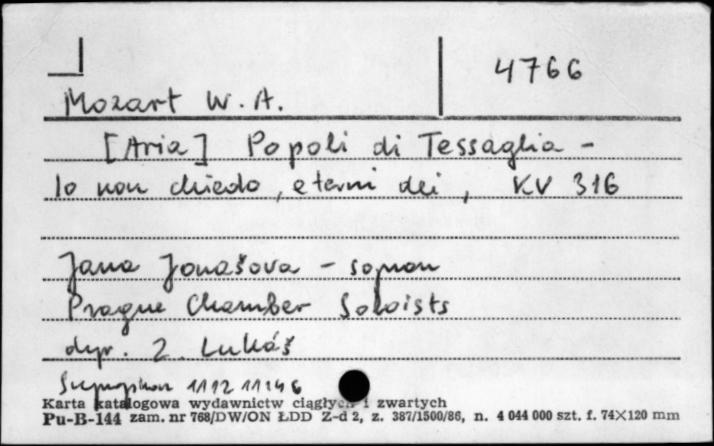 4766
Mozart W. A.
[Aria] Popoli di Tessaglia -
Io non chiedo, eterni dei, KV 316
Jana Jonašova - sopran
Prague Chamber Soloists
dyr. Z. Lukáš
Supraphon 1112 11146
Karta katalogowa wydawnictw ciągłych i zwartych
Pu-B-144 zam. nr 768/DW/ON ŁDD Z-d 2, z. 387/1500/86, n. 4 044 000 szt. f. 74×120 mm